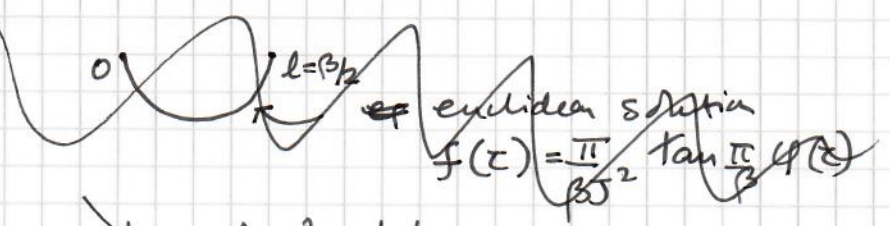 0 l=β/2 euclidean solution
f(τ) = π/βJ² tan π/β φ(τ)